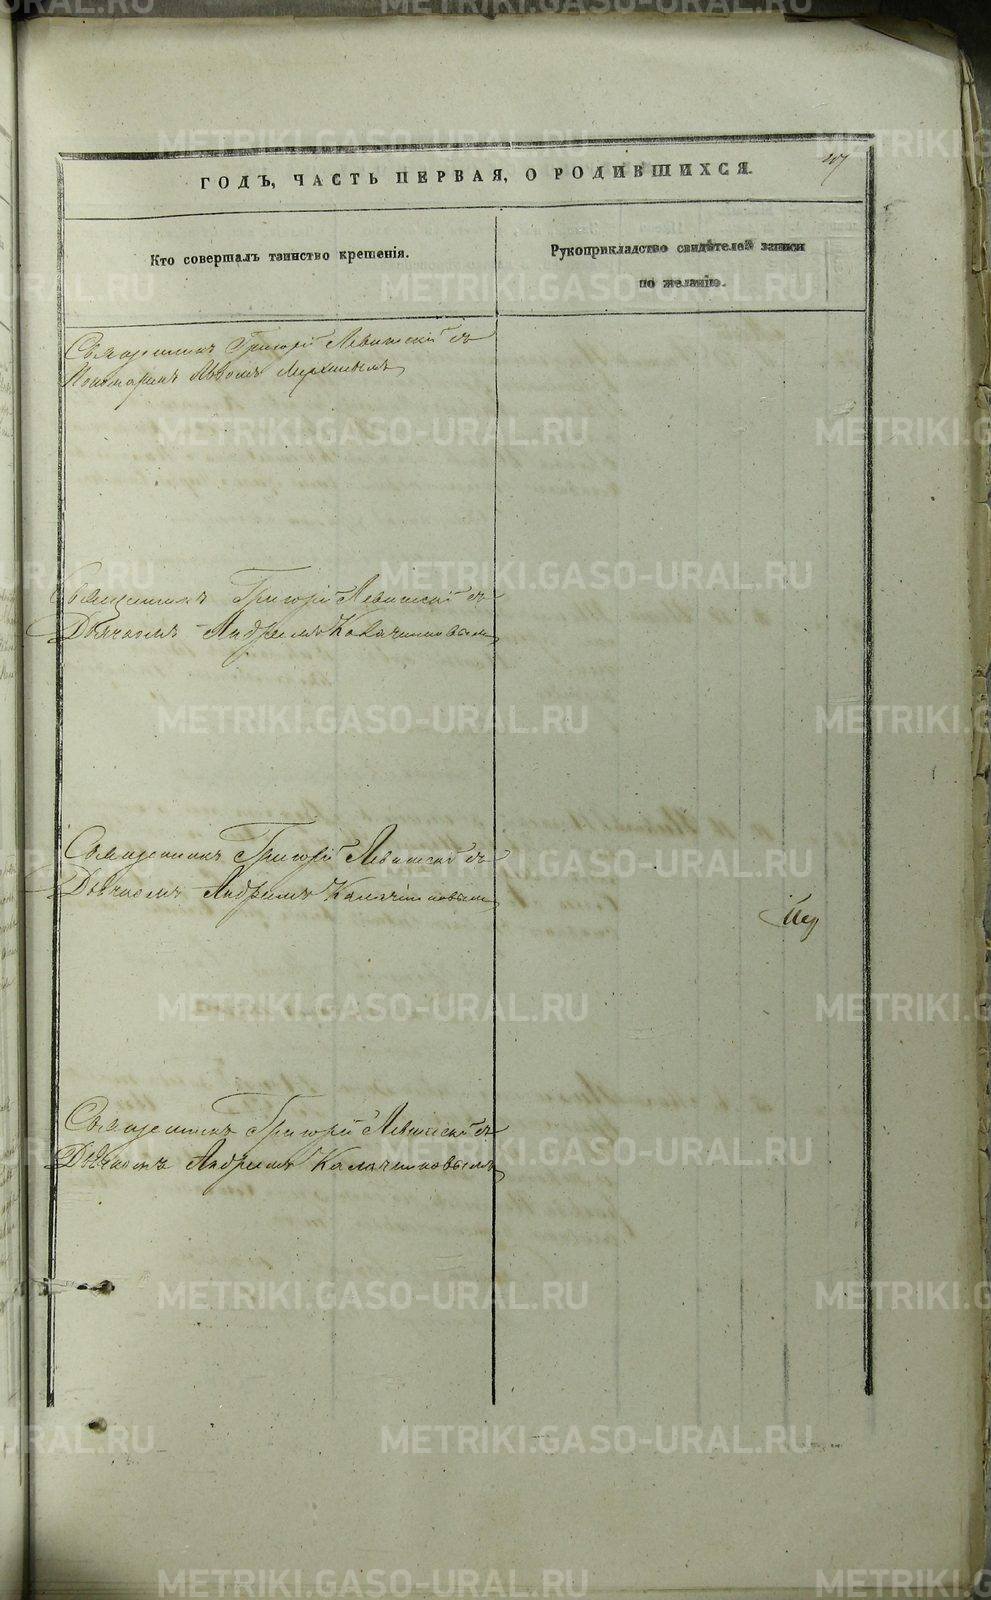 207
ГОДЪ, ЧАСТЬ ПЕРВАЯ, О РОДИВШИХСЯ.
Кто совершалъ таинство крещенія.
Рукоприкладство свидѣтелей записи
по желанію.
Священникъ Григорій Левитскій съ
Пономаремъ Львомъ
Священникъ Григорій Левитскій съ
Дьячкомъ Андреемъ Калачниковымъ
Священникъ Григорій Левитскій съ
Дьячкомъ Андреемъ Калачниковымъ
Священникъ Григорій Левитскій съ
Дьячкомъ Андреемъ Калачниковымъ
METRIKI.GASO-URAL.RU